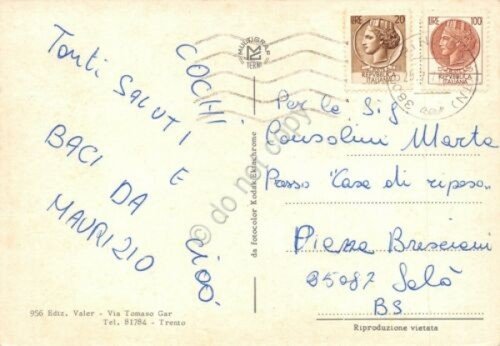 COCHI
Tanti SALUTI E
BACI DA ciao
MAURIZIO
956 Ediz. Valer - Via Tomaso Gar
Tel. 81784 - Trento
MULTIGRAF
TERNI
da fotocolor Kodak Ektachrome
© do not copy
LIRE 20
REPVBBLICA
ITALIANA
LIRE 100
REPVBBLICA
ITALIANA
Per le Sig
Consolini Marta
Presso "Casa di riposo"
Piazza Bresciani
25087 Salò
BS
Riproduzione vietata